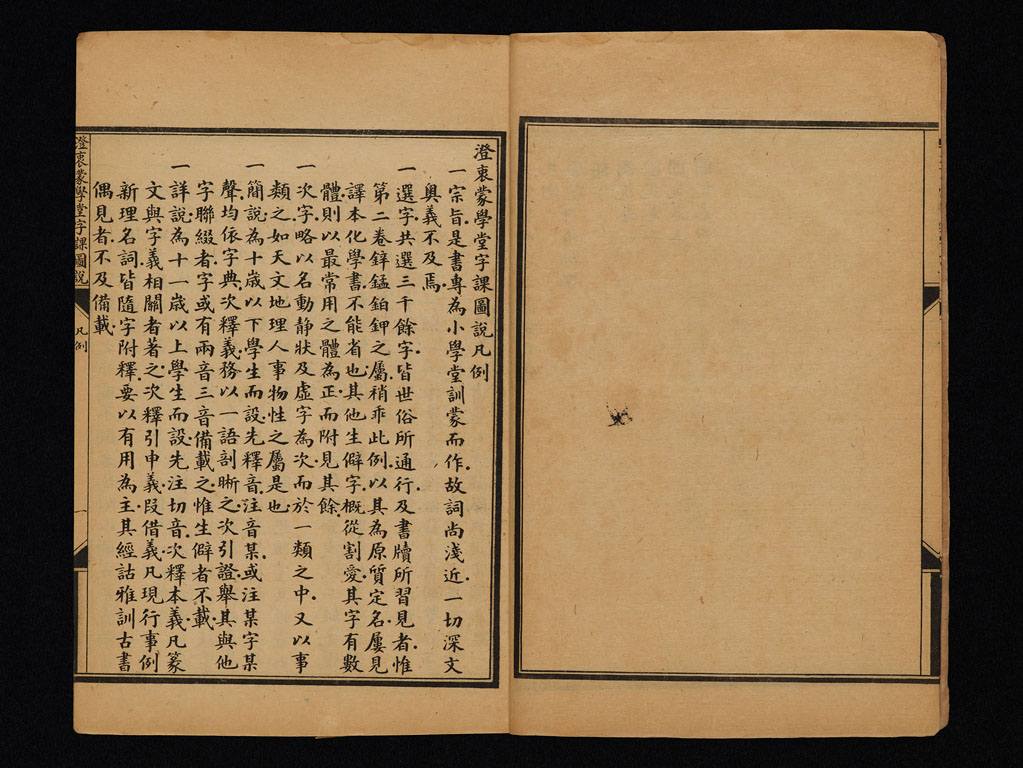 澄衷蒙學堂字課圖說凡例
一宗旨是書專為小學堂訓蒙而作故詞尚淺近一切深文
奧義不及焉
一選字共選三千餘字皆世俗所通行及書牘所習見者惟
第二卷鋅錳鉑鉀之屬稍乖此例以其為原質定名屢見
譯本化學書不能省也其他生僻字概從割愛其字有數
體則以最常用之體為正而附見其餘
一次字略以名動靜狀及虛字為次而於一類之中又以事
類之如天文地理人事物性之屬是也
一簡說為十歲以下學生而設先釋音注音某或注某字某
聲均依字典次釋義務以一語剖晰之次引證舉其與他
字聯綴者字或有兩音三音備載之惟生僻者不載
一詳說為十一歲以上學生而設先注切音次釋本義凡篆
文與字義相關者著之次釋引申義段借義凡現行事例
新理名詞皆隨字附釋要以有用為主其經詁雅訓古書
偶見者不及備載
澄衷蒙學堂字課圖說
凡例
一